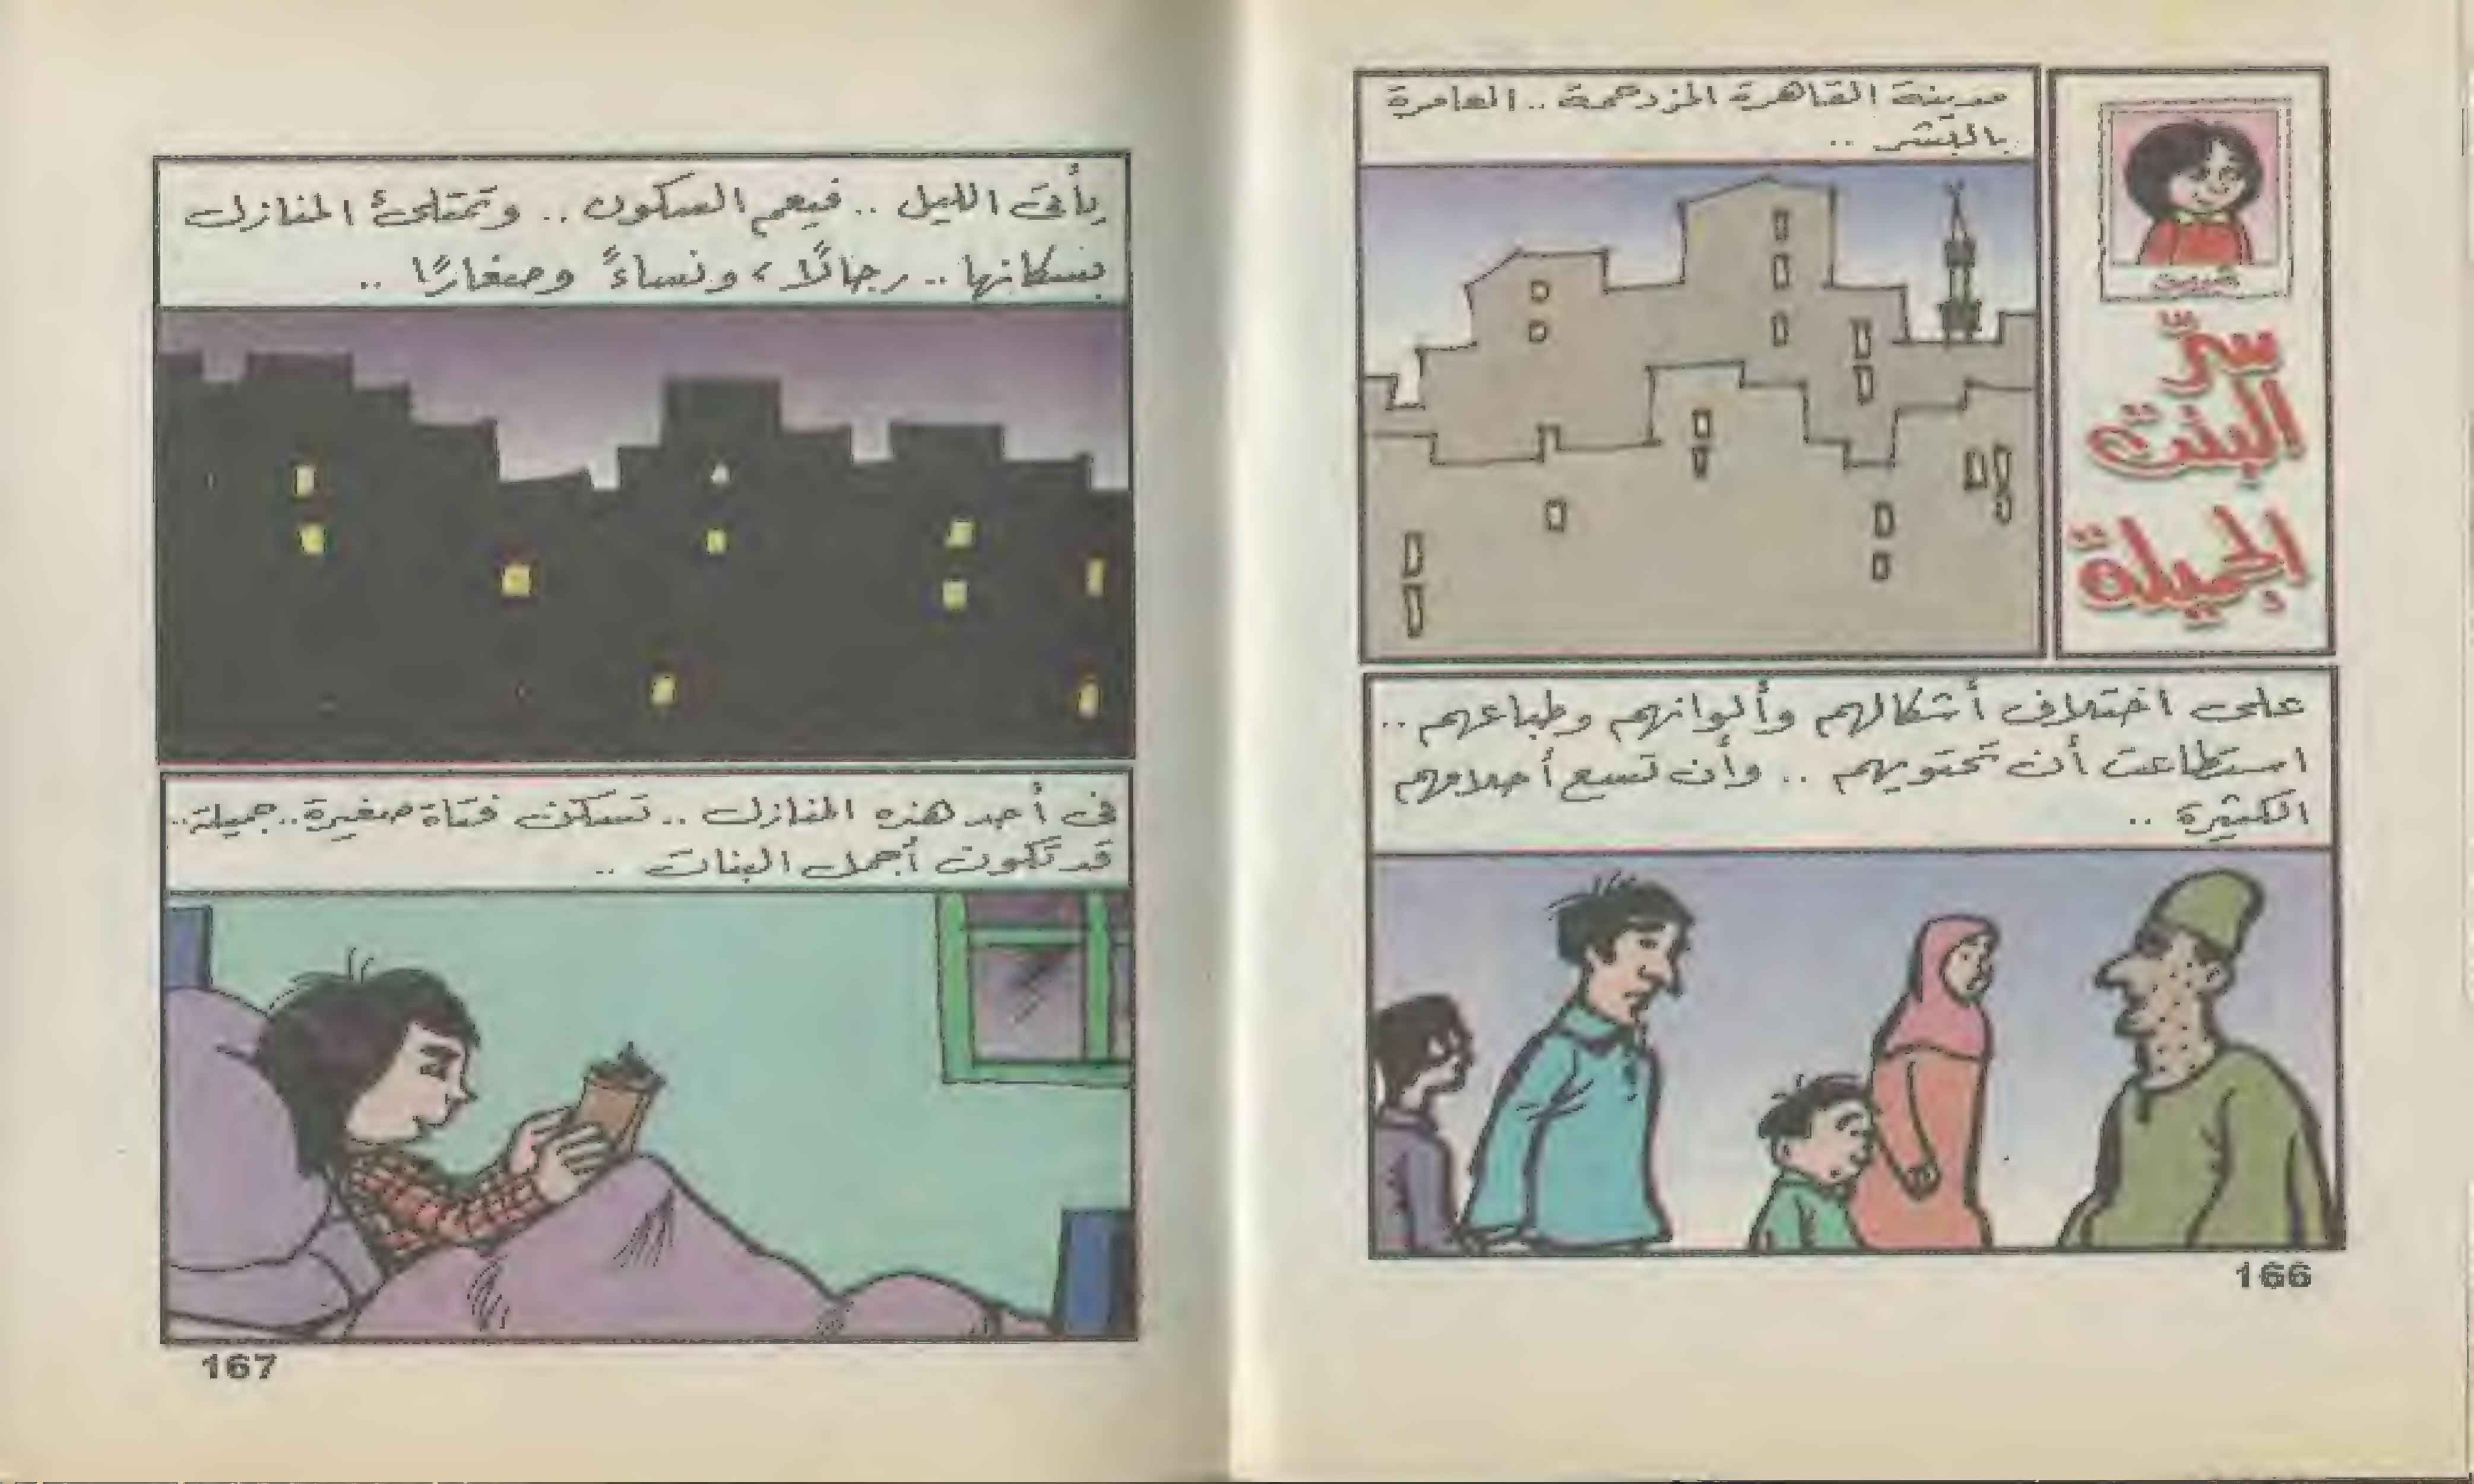 سرّ
البنت
الجميلة
مدينة القاهرة المزدحمة .. العامرة
بالبشر ..
على اختلاف أشكالهم وألوانهم وطباعهم ..
استطاعت أن تحتويهم .. وأن تسع أحلامهم
الكثيرة ..
166
يأتى الليل .. فيعم السكون .. وتمتلئ المنازل
بسكانها .. رجالًا، ونساءً وصغارًا ..
فى أحد هذه المنازل .. تسكن فتاة صغيرة .. جميلة ..
قد تكون أجمل البنات ..
167